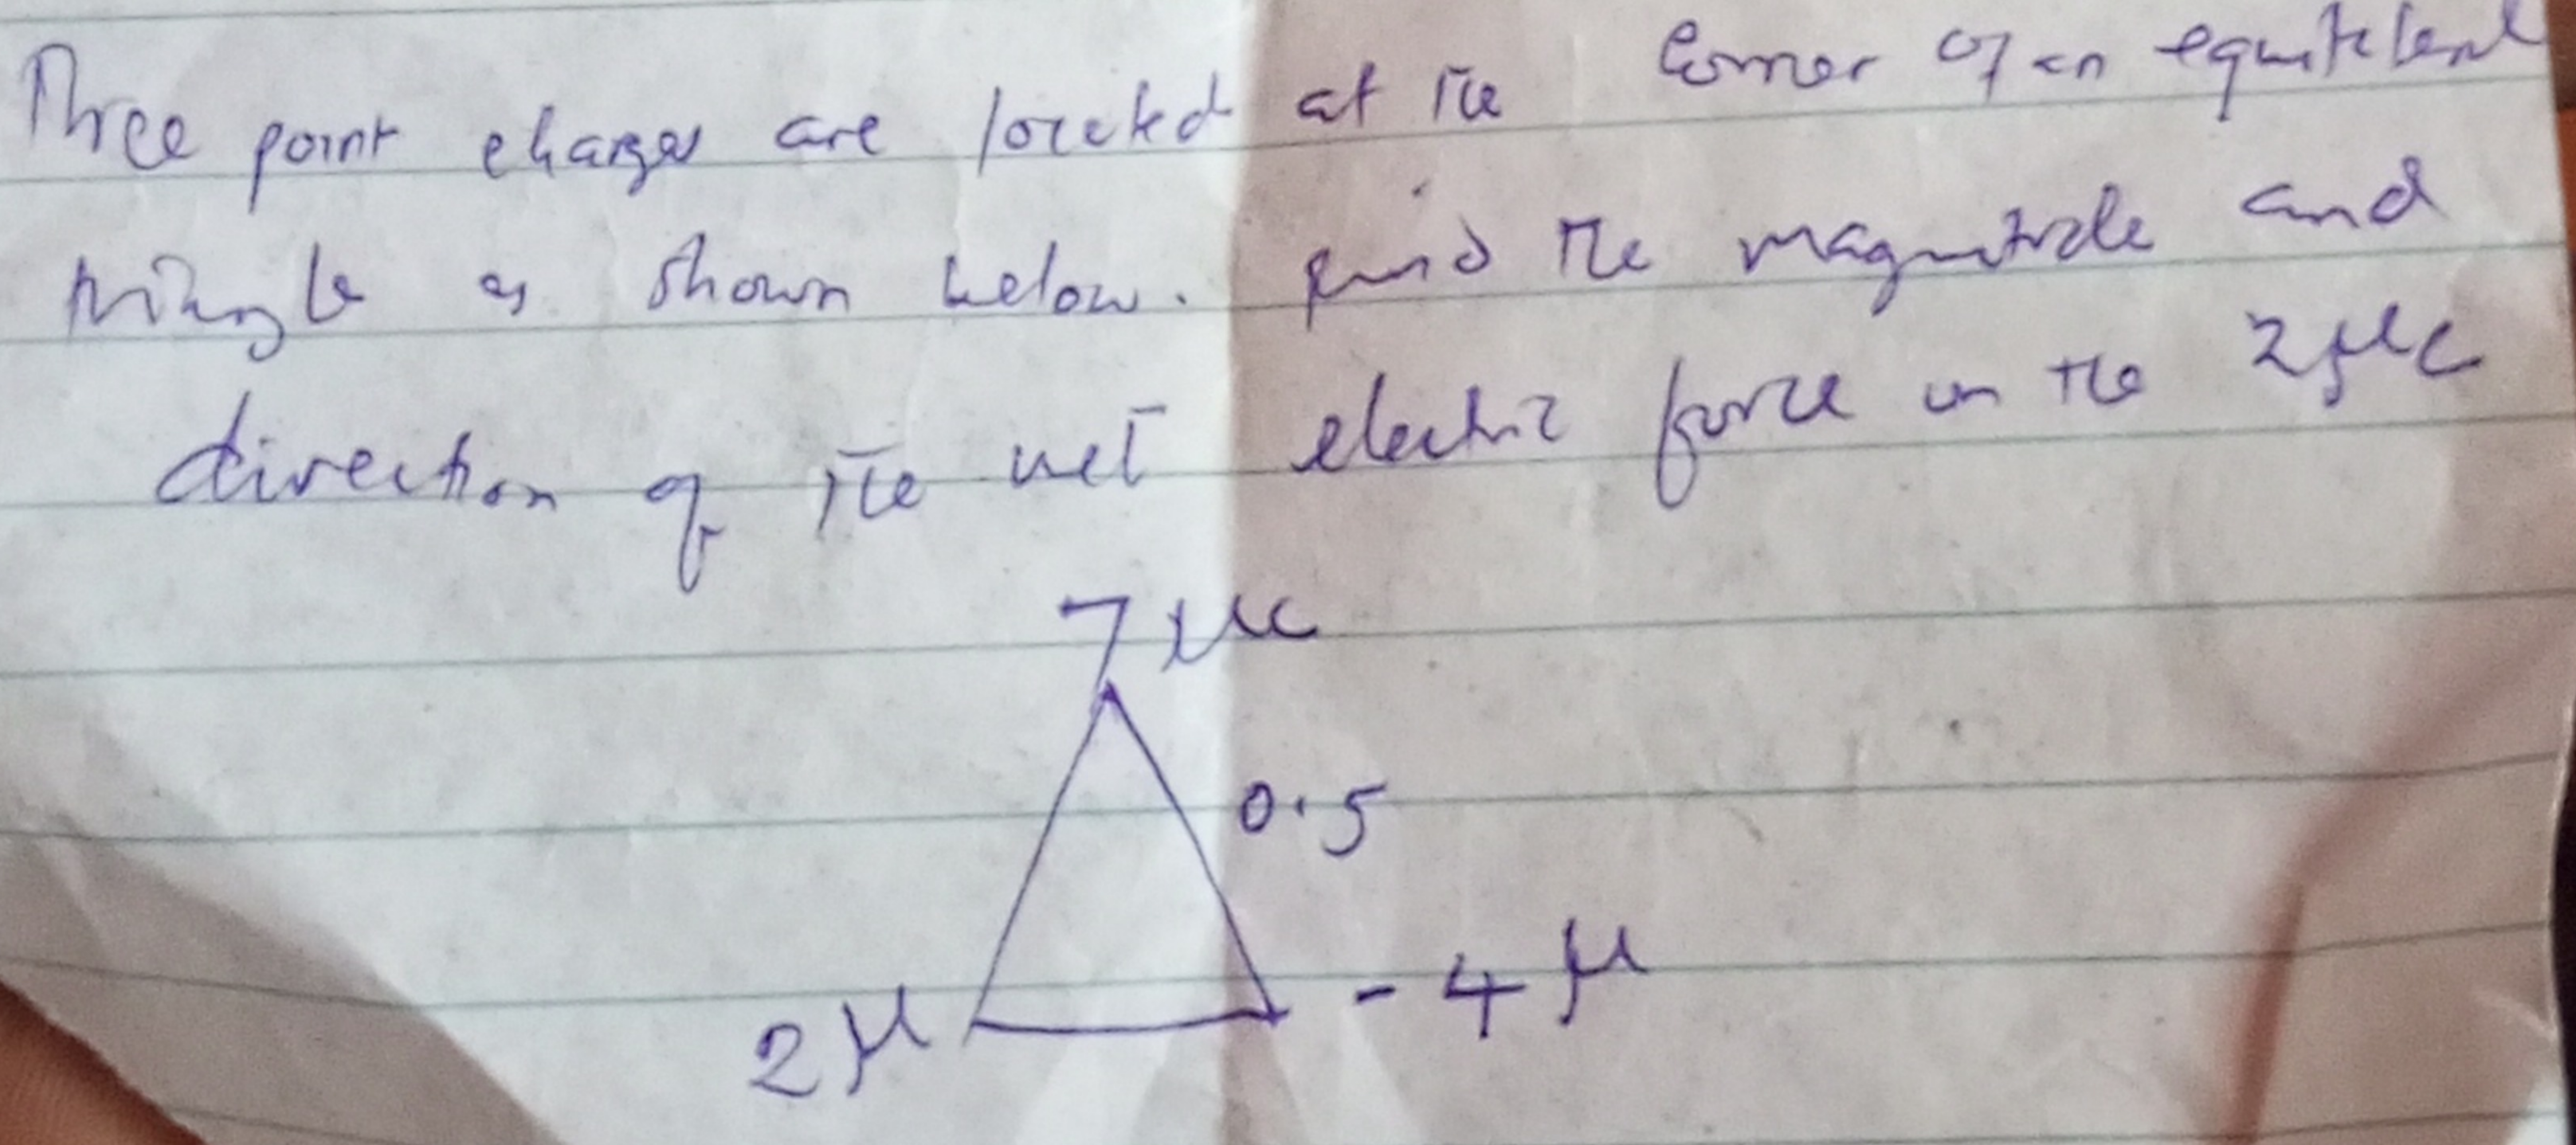 Three point charges are located at the corner of an equilateral
triangle as shown below. find the magnitude and
direction of the net electric force on the 2μC
7μc
0.5
2μ
- 4μ